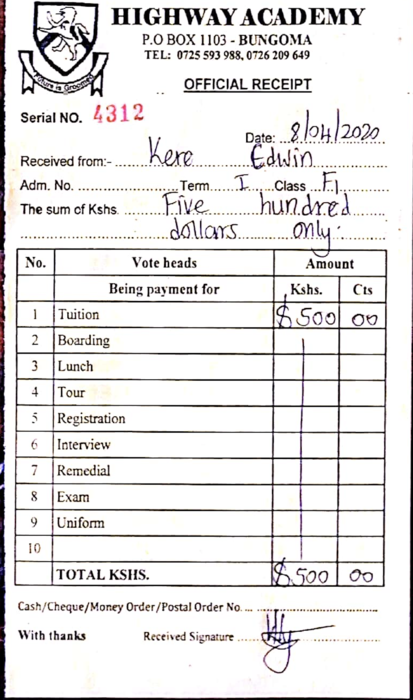 HIGHWAY ACADEMY
P.O BOX 1103 - BUNGOMA
TEL: 0725 593 988, 0726 209 649
Future is Groomed
OFFICIAL RECEIPT
Serial NO. 4312
Date: 8/04/2020
Received from:- Kere Edwin
Adm. No. Term I Class F1
The sum of Kshs. Five hundred
dollars only:
No. Vote heads Amount
Being payment for Kshs. Cts
1 Tuition $500 00
2 Boarding
3 Lunch
4 Tour
5 Registration
6 Interview
7 Remedial
8 Exam
9 Uniform
10
TOTAL KSHS. $500 00
Cash/Cheque/Money Order/Postal Order No.
With thanks Received Signature